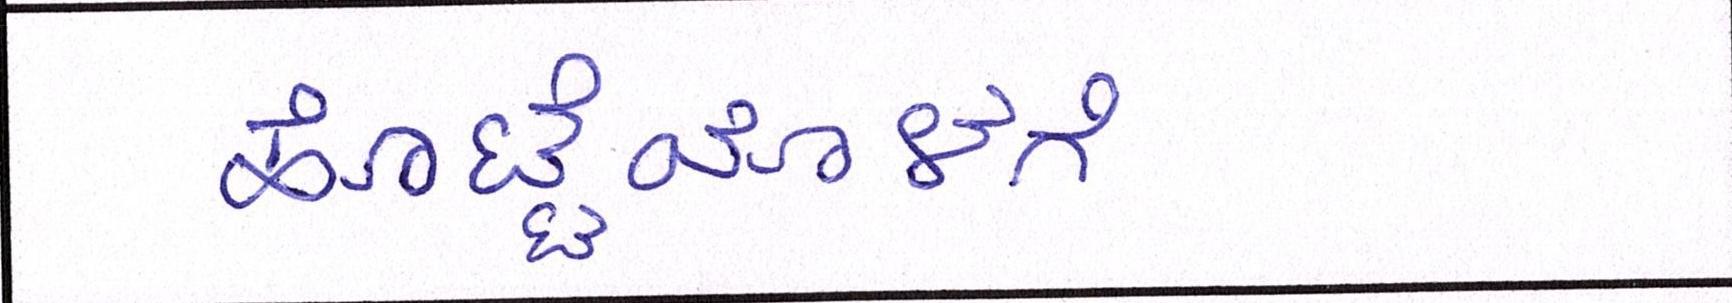 ಹೊಟ್ಟೆಯೊಳಗೆ